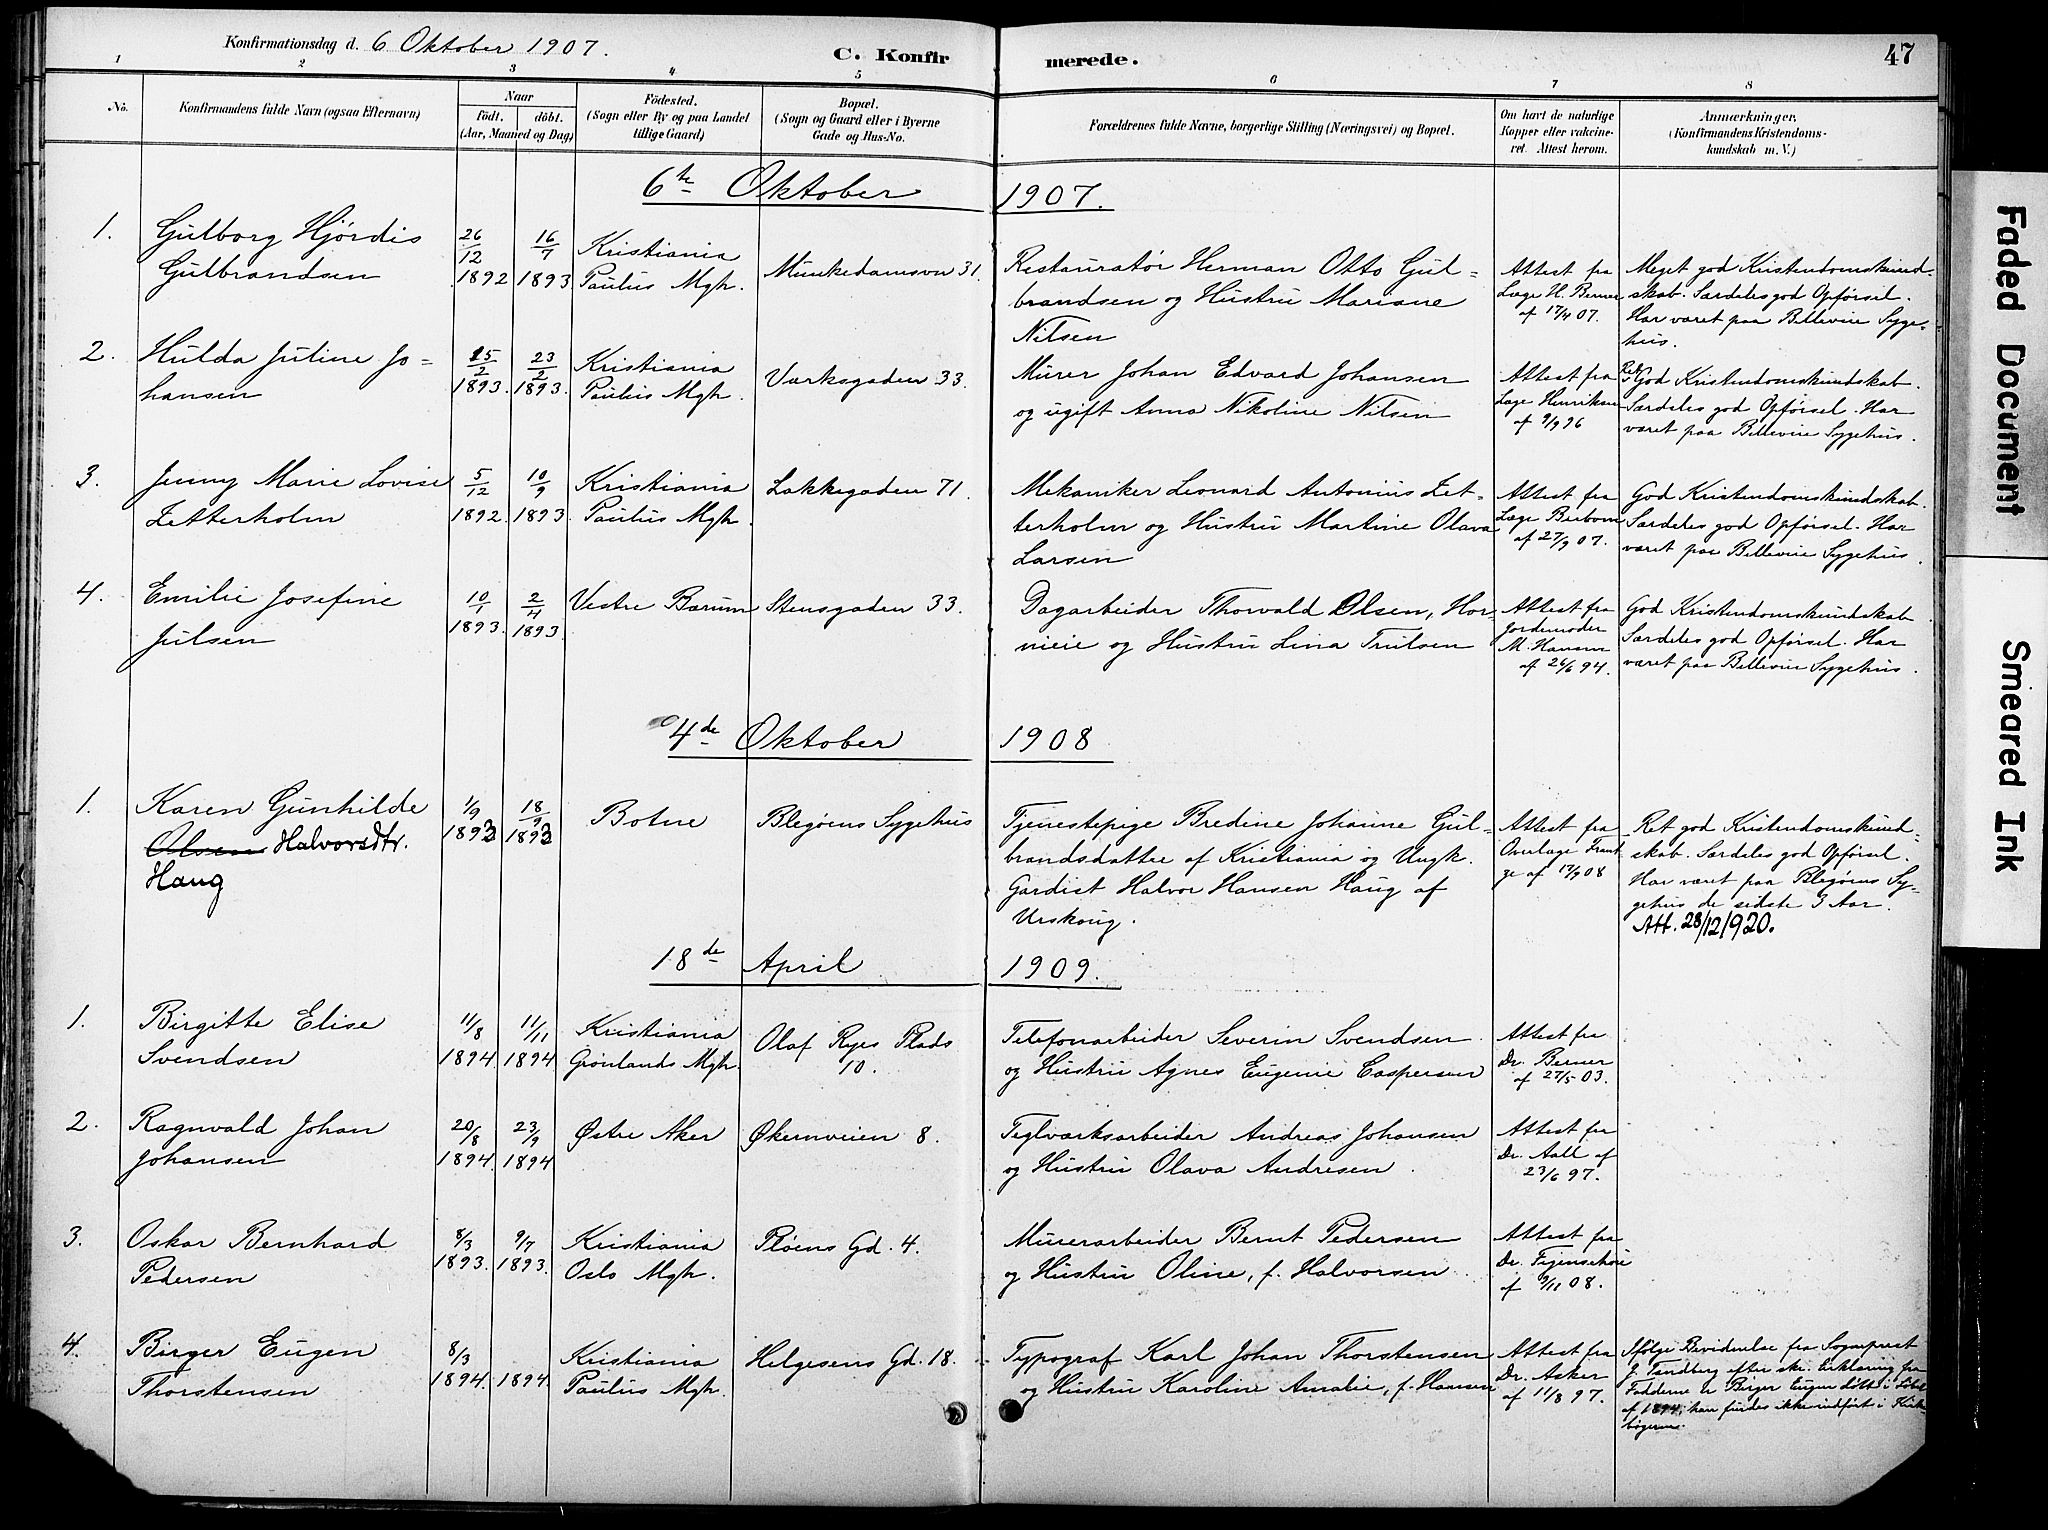 Konfirmationsdag d. 6 Oktober 1907.
C. Konfirmerede.
47
1 2 3 4 5 6 7 8
No.
Konfirmandens fulde Navn (ogsaa Efternavn)
Naar
födt. döbt.
(Aar, Maaned og Dag)
Födested.
(Sogn eller By og paa Landet
tillige Gaard)
Bopæl.
(Sogn og Gaard eller i Byerne
Gade og Hus-No.
Forældrenes fulde Navne, borgerlige Stilling (Næringsvei) og Bopæl.
Om havt de naturlige
Kopper eller vakcine-
ret. Attest herom.
Anmærkninger.
(Konfirmandens Kristendoms-
kundskab m. V.)
6te Oktober 1907.
1.
Gulborg Hjördis
Gulbrandsen
26/12
1892
16/7
1893
Kristiania
Paulus Mgh.
Munkedamsvn 31.
Restauratør Herman Otto Gul-
brandsen og Hustru Mariane
Nilsen
Attest fra
Læge H. Berner
af 17/4 07.
Meget god Kristendomskund-
skab. Særdeles god Opførsel.
Har været paa Bellevue Syge-
hus.
2.
Hulda Juline Jo-
hansen
15/2
1893.
23/2
1893.
Kristiania
Paulus Mgh.
Værksgaden 33.
Murer Johan Edvard Johansen
og ugift Anna Nikoline Nilsen
Attest fra
Læge Henriksen
af 9/9 96
God Kristendomskundskab.
Særdeles god Opførsel. Har
været paa Bellevue Sygehus.
3.
Jenny Marie Lovise
Zetterholm
5/12
1892
10/9
1893.
Kristiania
Paulus Mgh.
Lakkegaden 71.
Mekaniker Leonard Antonius Zet-
terholm og Hustru Martine Olava
Larsen
Attest fra
Læge
af 27/9 07.
God Kristendomskundskab.
Særdeles god Opførsel. Har
været paa Bellevue Sygehus.
4.
Emilie Josefine
Julsen
10/1
1893.
2/4
1893.
Vestre Bærum
Stensgaden 33.
Dagarbeider Thorvald Olsen, Hor-
nieie og Hustru Lina Trulsen
Attest fra
Jordemoder
M. Hansen
af 26/6 94.
God Kristendomskundskab
Særdeles god Opførsel. Har
været paa Bellevue Sygehus.
4de Oktober 1908
1.
Karen Gunhilde
Halvorsdtr.
Haug
1/9
1893
18/9
1893
Botne
Blegøens Sygehus
Tjenestepige Bredine Johanne Gul-
brandsdatter af Kristiania og Ungk.
Gardist Halvor Hansen Haug af
Urskoug.
Attest fra
Overlæge
af 17/9 08
Ret god Kristendomskund-
skab. Særdeles god Opførsel.
Har været paa Blegøens Sy-
gehus de sidste 3 Aar.
Att. 28/12 1920.
18de April 1909.
1.
Birgitte Elise
Svendsen
11/8
1894
11/11
1894
Kristiania
Grønlands Mgh.
Olaf Ryes Plads
10.
Telefonarbeider Severin Svendsen
og Hustru Agnes Eugenie Caspersen
Attest fra
Dr. Berner
af 27/5 03.
2.
Ragnvald Johan
Johansen
20/8
1894.
23/9
1894
Østre Aker
Økernveien 8.
Teglværksarbeider Andreas Johansen
og Hustru Olava Andresen.
Attest fra
Dr. Aall af
23/6 97.
3.
Oskar Bernhard
Pedersen
8/3
1893.
9/7
1893.
Kristiania
Oslo Mgh.
Pløens Gd. 4.
Murerarbeider Bernt Pedersen
og Hustru Oline, f. Halvorsen.
Attest fra
Dr.
af 9/11 08.
4.
Birger Eugen
Thorstensen
8/3
1894.
1894.
Kristiania
Paulus Mgh.
Helgesens Gd. 18.
Typograf Karl Johan Thorstensen
og Hustru Karoline Amalie, f. Hansen
Attest fra
Dr. Asker
af 11/8 97.
Ifølge Bevidnelse fra Sogneprest
J. Tandberg efter skr. Erklæring fra
Fadderne er Birger Eugen døbt i Løbet
af 1894, han findes ikke indført i Kirke-
bøgerne.
Faded Document
Smeared Ink